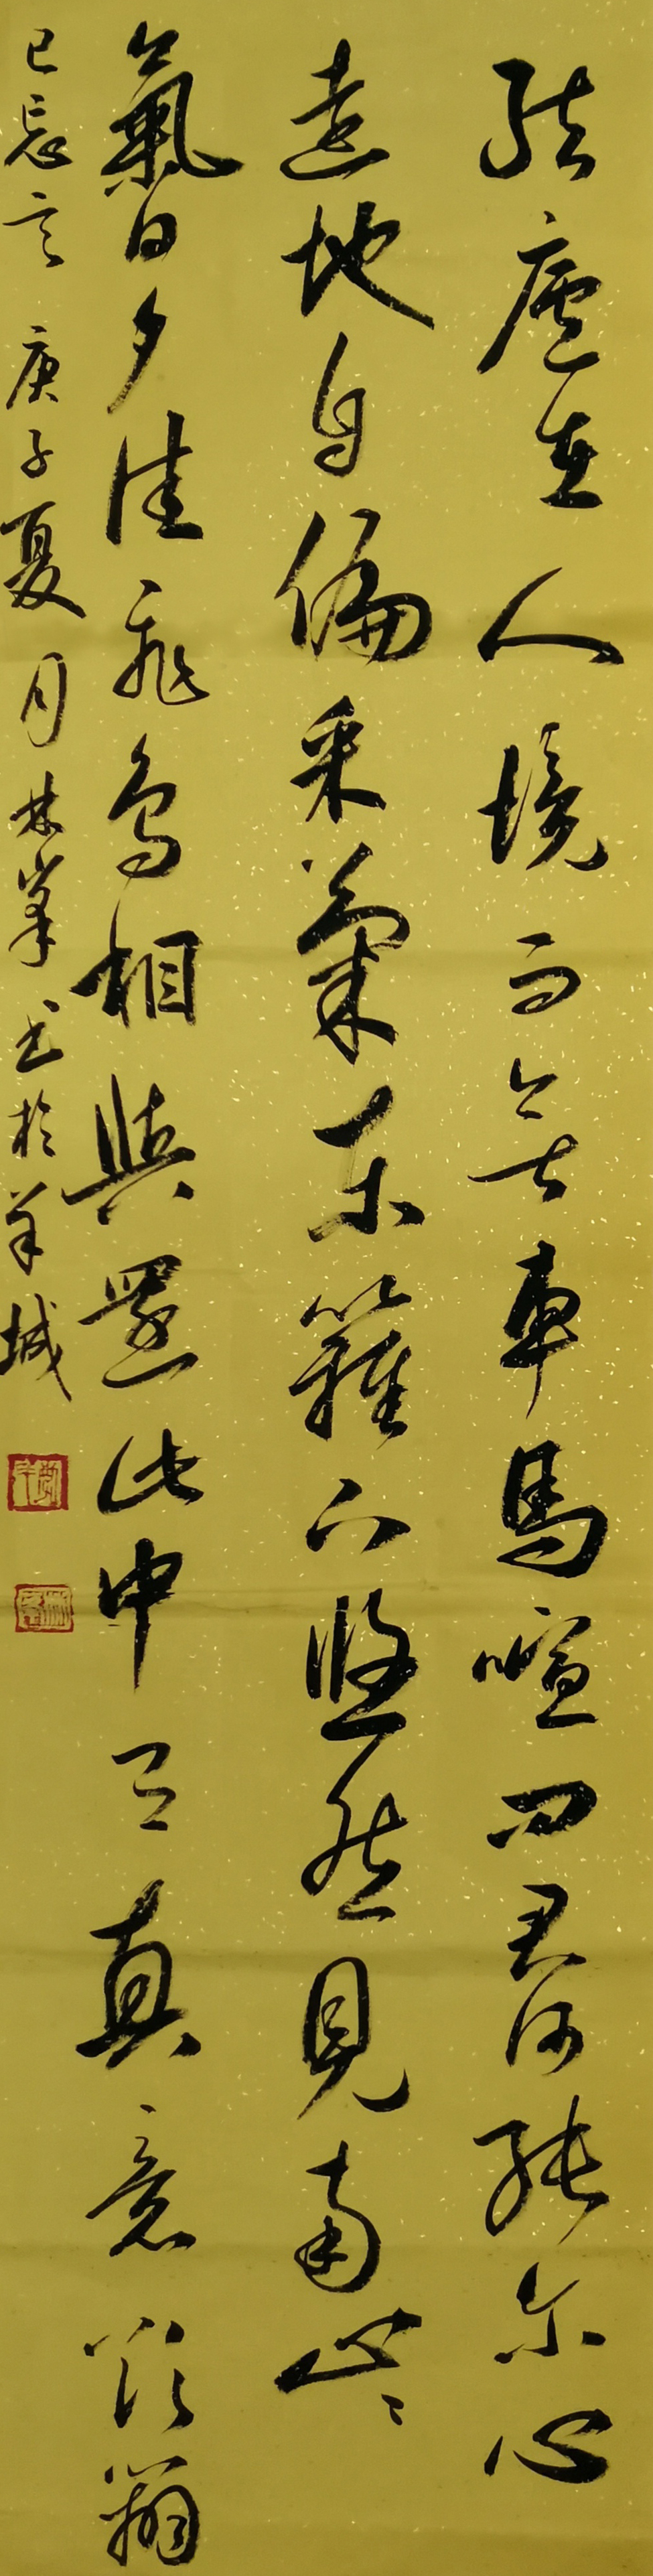 結廬在人境而無車馬喧問君何能尔心
遠地自偏采菊東籬下悠然見南山々
氣日夕佳飛鳥相與還此中有真意欲辯
已忘言 庚子夏月林峯书於羊城